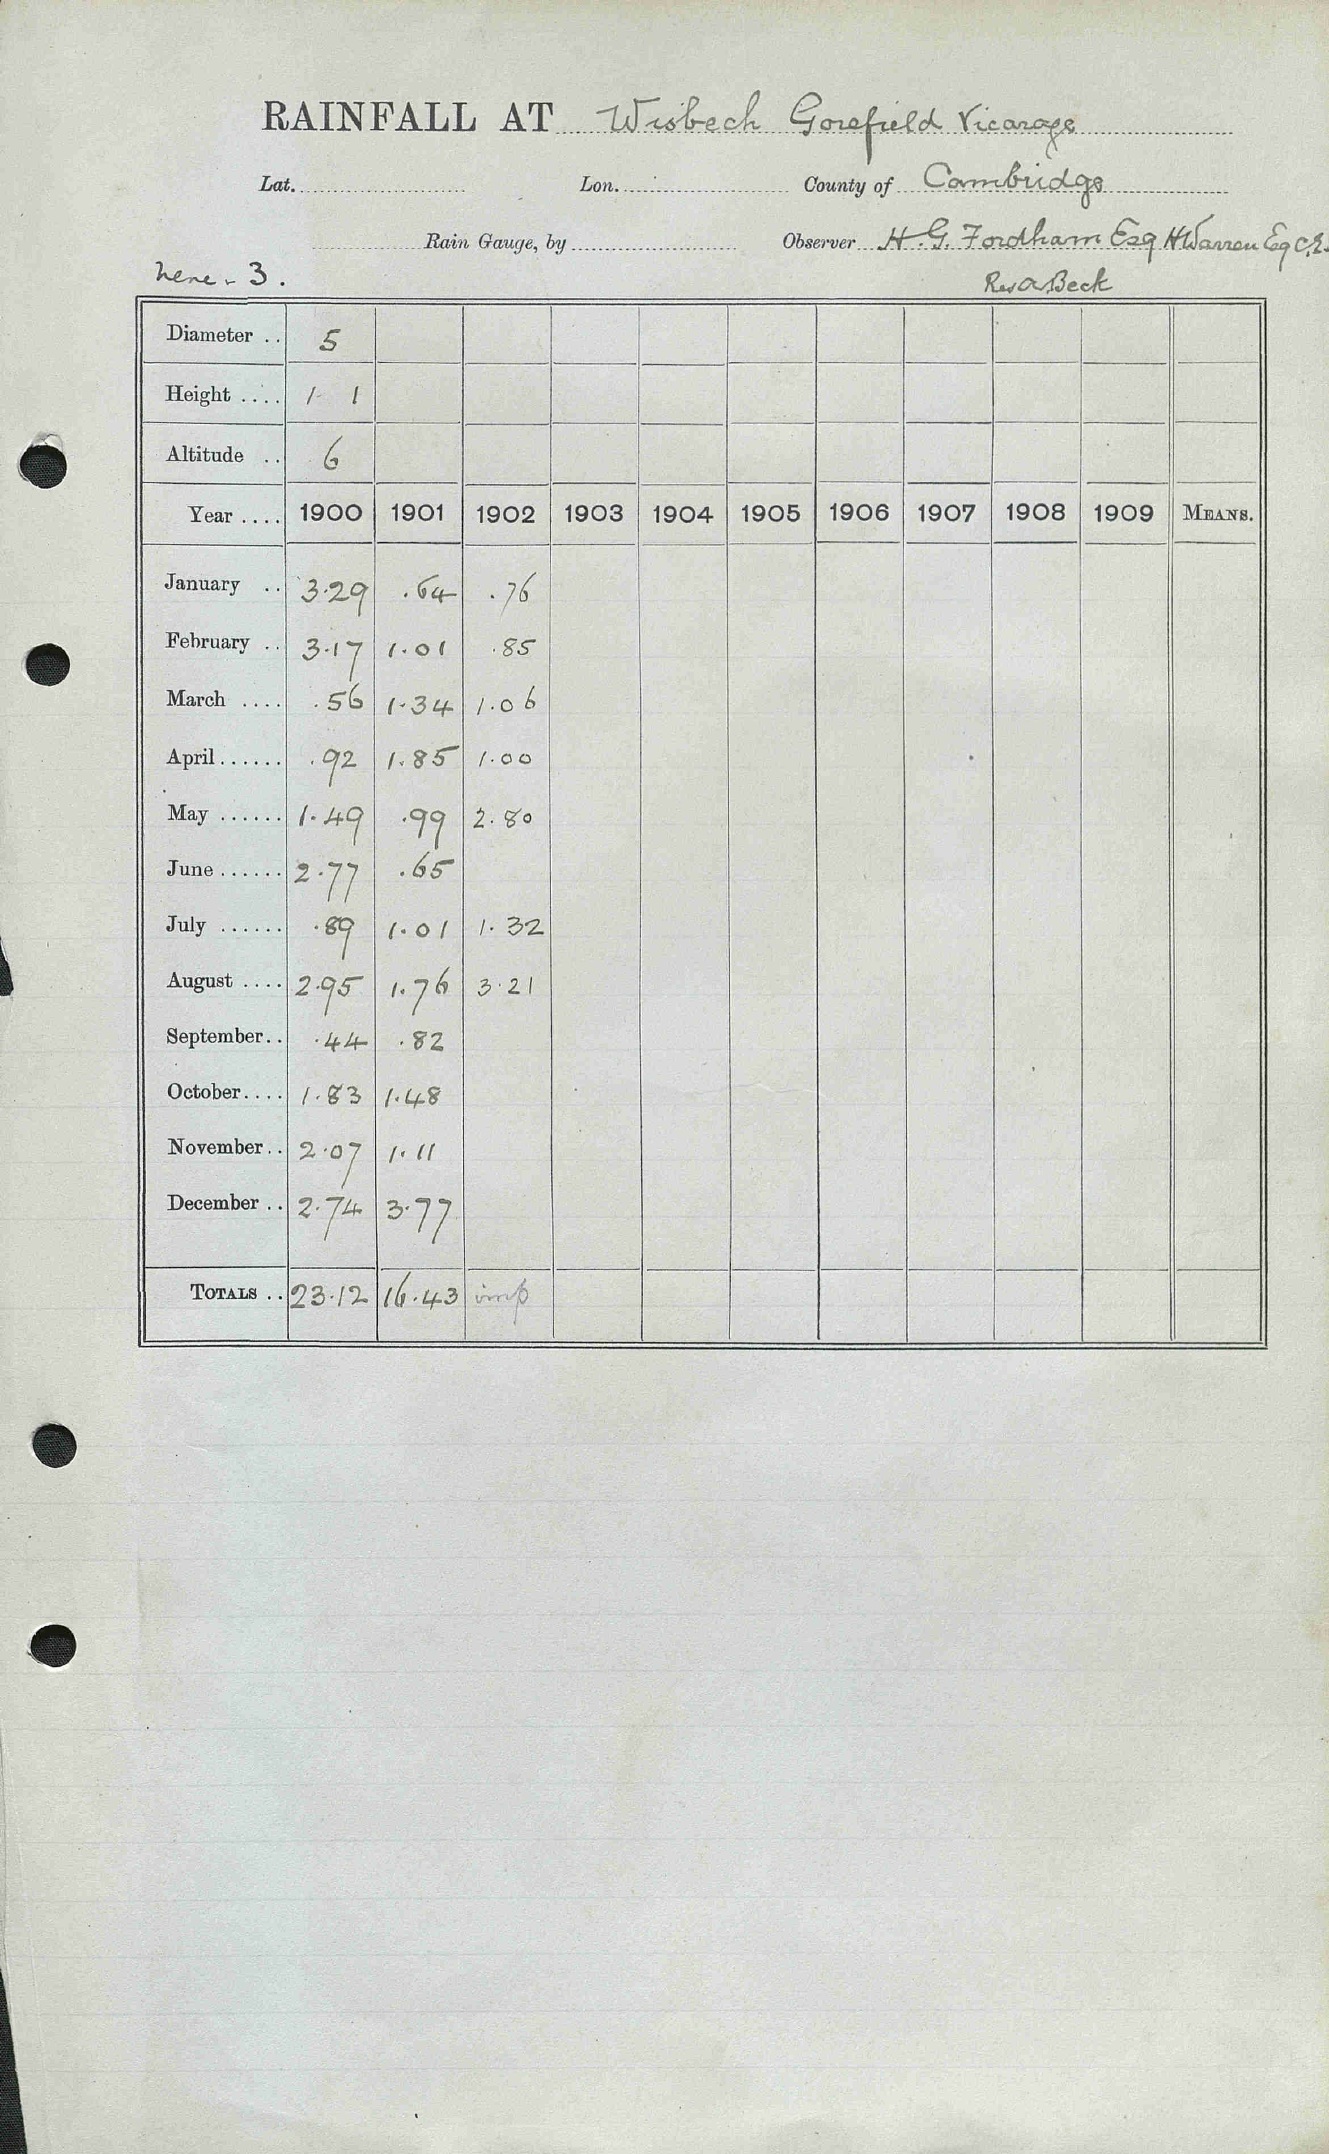 RAINFALL AT Wisbech Gorefield Vicarage
Lat. Lon. County of Cambridge
Rain Gauge, by Observer H. G. Fordham Esq H Warren Esq C.E.
Nene - 3. Rev A Beck
Diameter .. 5
Height .... 1 1
Altitude .. 6
Year .... 1900 1901 1902 1903 1904 1905 1906 1907 1908 1909 MEANS.
January .. 3.29 .64 .76
February .. 3.17 1.01 .85
March .... .56 1.34 1.06
April ...... .92 1.85 1.00
May ...... 1.49 .99 2.80
June ...... 2.77 .65
July ...... .89 1.01 1.32
August .... 2.95 1.76 3.21
September .. .44 .82
October .... 1.83 1.48
November .. 2.07 1.11
December .. 2.74 3.77
TOTALS .. 23.12 16.43 imp